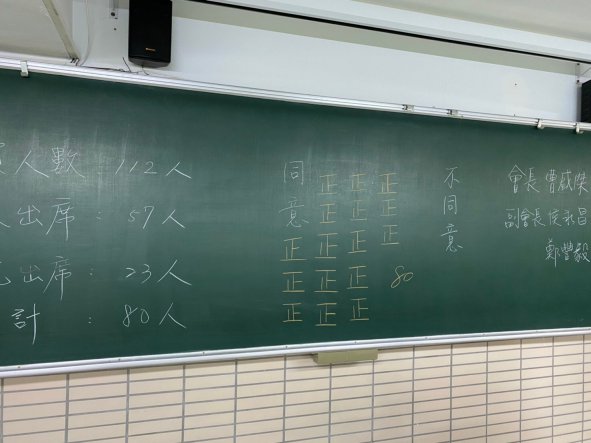 人數：112人
出席：57人
出席：23人
計：80人
同意正正正
正正正正正
正正正正正
正正正
80
不同意
會長 曹威傑
副會長 侯永昌
鄭豐毅